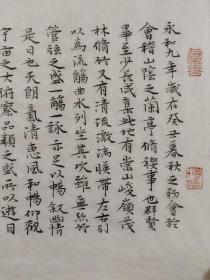 永和九年歲在癸丑暮春之初會於
會稽山陰之蘭亭脩稧事也群賢
畢至少長咸集此地有崇山峻嶺茂
林脩竹又有清流激湍暎帶左右引
以為流觴曲水列坐其次雖無絲竹
管弦之盛一觴一詠亦足以暢敘幽情
是日也天朗氣清惠風和暢仰觀
宇宙之大俯察品類之盛所以遊目